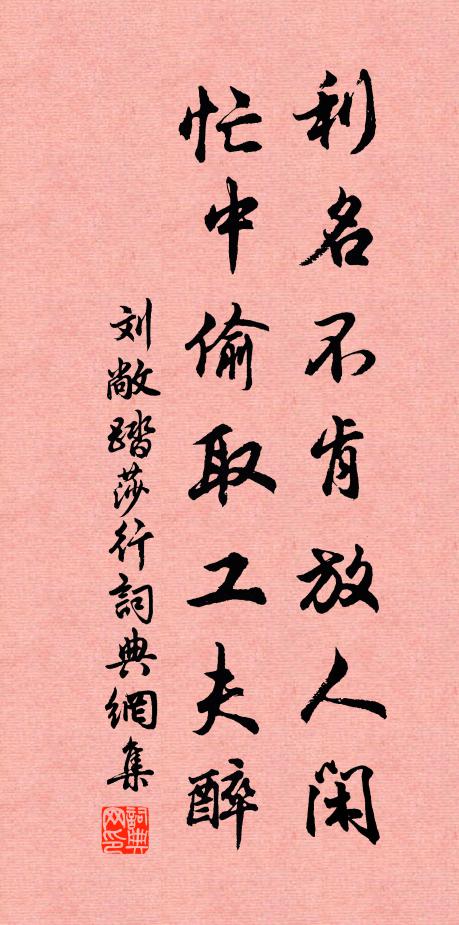 利名不肯放人闲
忙中偷取工夫醉
刘敞踏莎行詞典網集
詞典网印